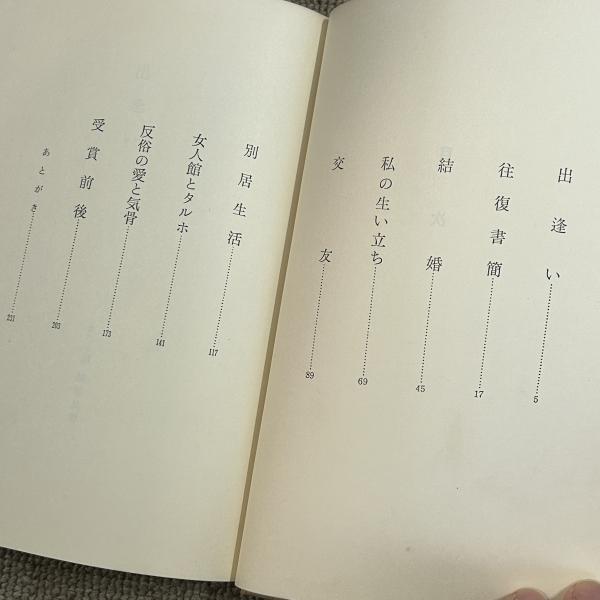 出逢い……5
往復書簡……17
結婚……45
私の生い立ち……69
交友……89
別居生活……117
女人館とタルホ……141
反俗の愛と気骨……173
受賞前後……203
あとがき……231